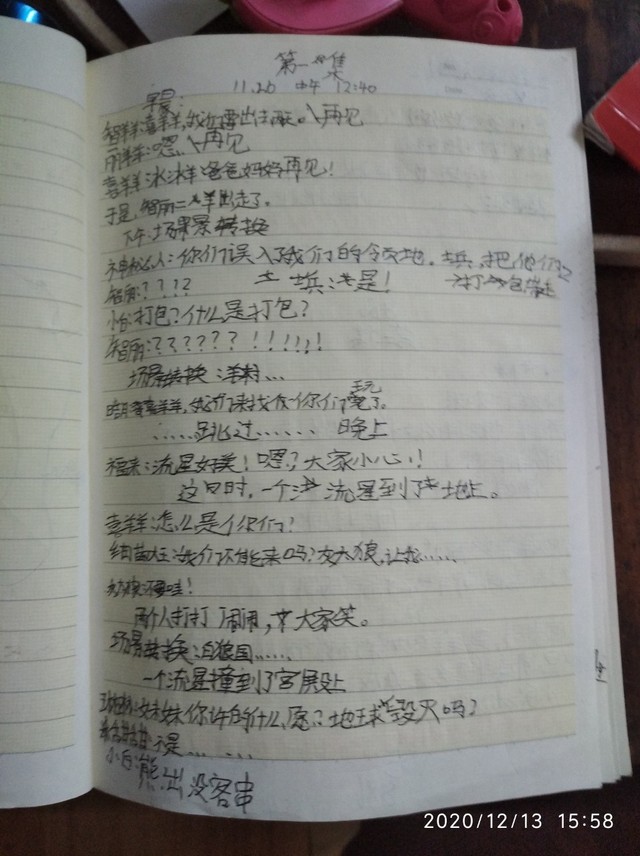 第一集
11.20 中午 12:40
早晨:
智羊羊:喜羊羊,我们要出去玩。\再见
丽羊羊:嗯,\再见
喜羊羊 沐沐羊:爸爸妈妈再见!
于是,智丽二羊出走了。
下午 场景转换
神秘人:你们误入了我们的领地。士兵,把他们
打包带走
智丽:???? 士兵:是!
小白:打包?什么是打包?
智丽:?????? !!!!!!
场景转换 羊村…
暗月:喜羊羊,我们来找你们玩了。
……跳过…… 晚上
福来:流星好美!嗯?大家小心!
这口时,一个流星到了地上。
喜羊羊:怎么是你们?
细菌大王:我们不能来吗?灰太狼,让我……
两个人打打闹闹,大家笑。
场景转换:白狼国……
一个流星撞到了宫殿上
妹妹你许的什么愿?地球毁灭吗?
不是……
小白:熊出没客串
2020/12/13 15:58